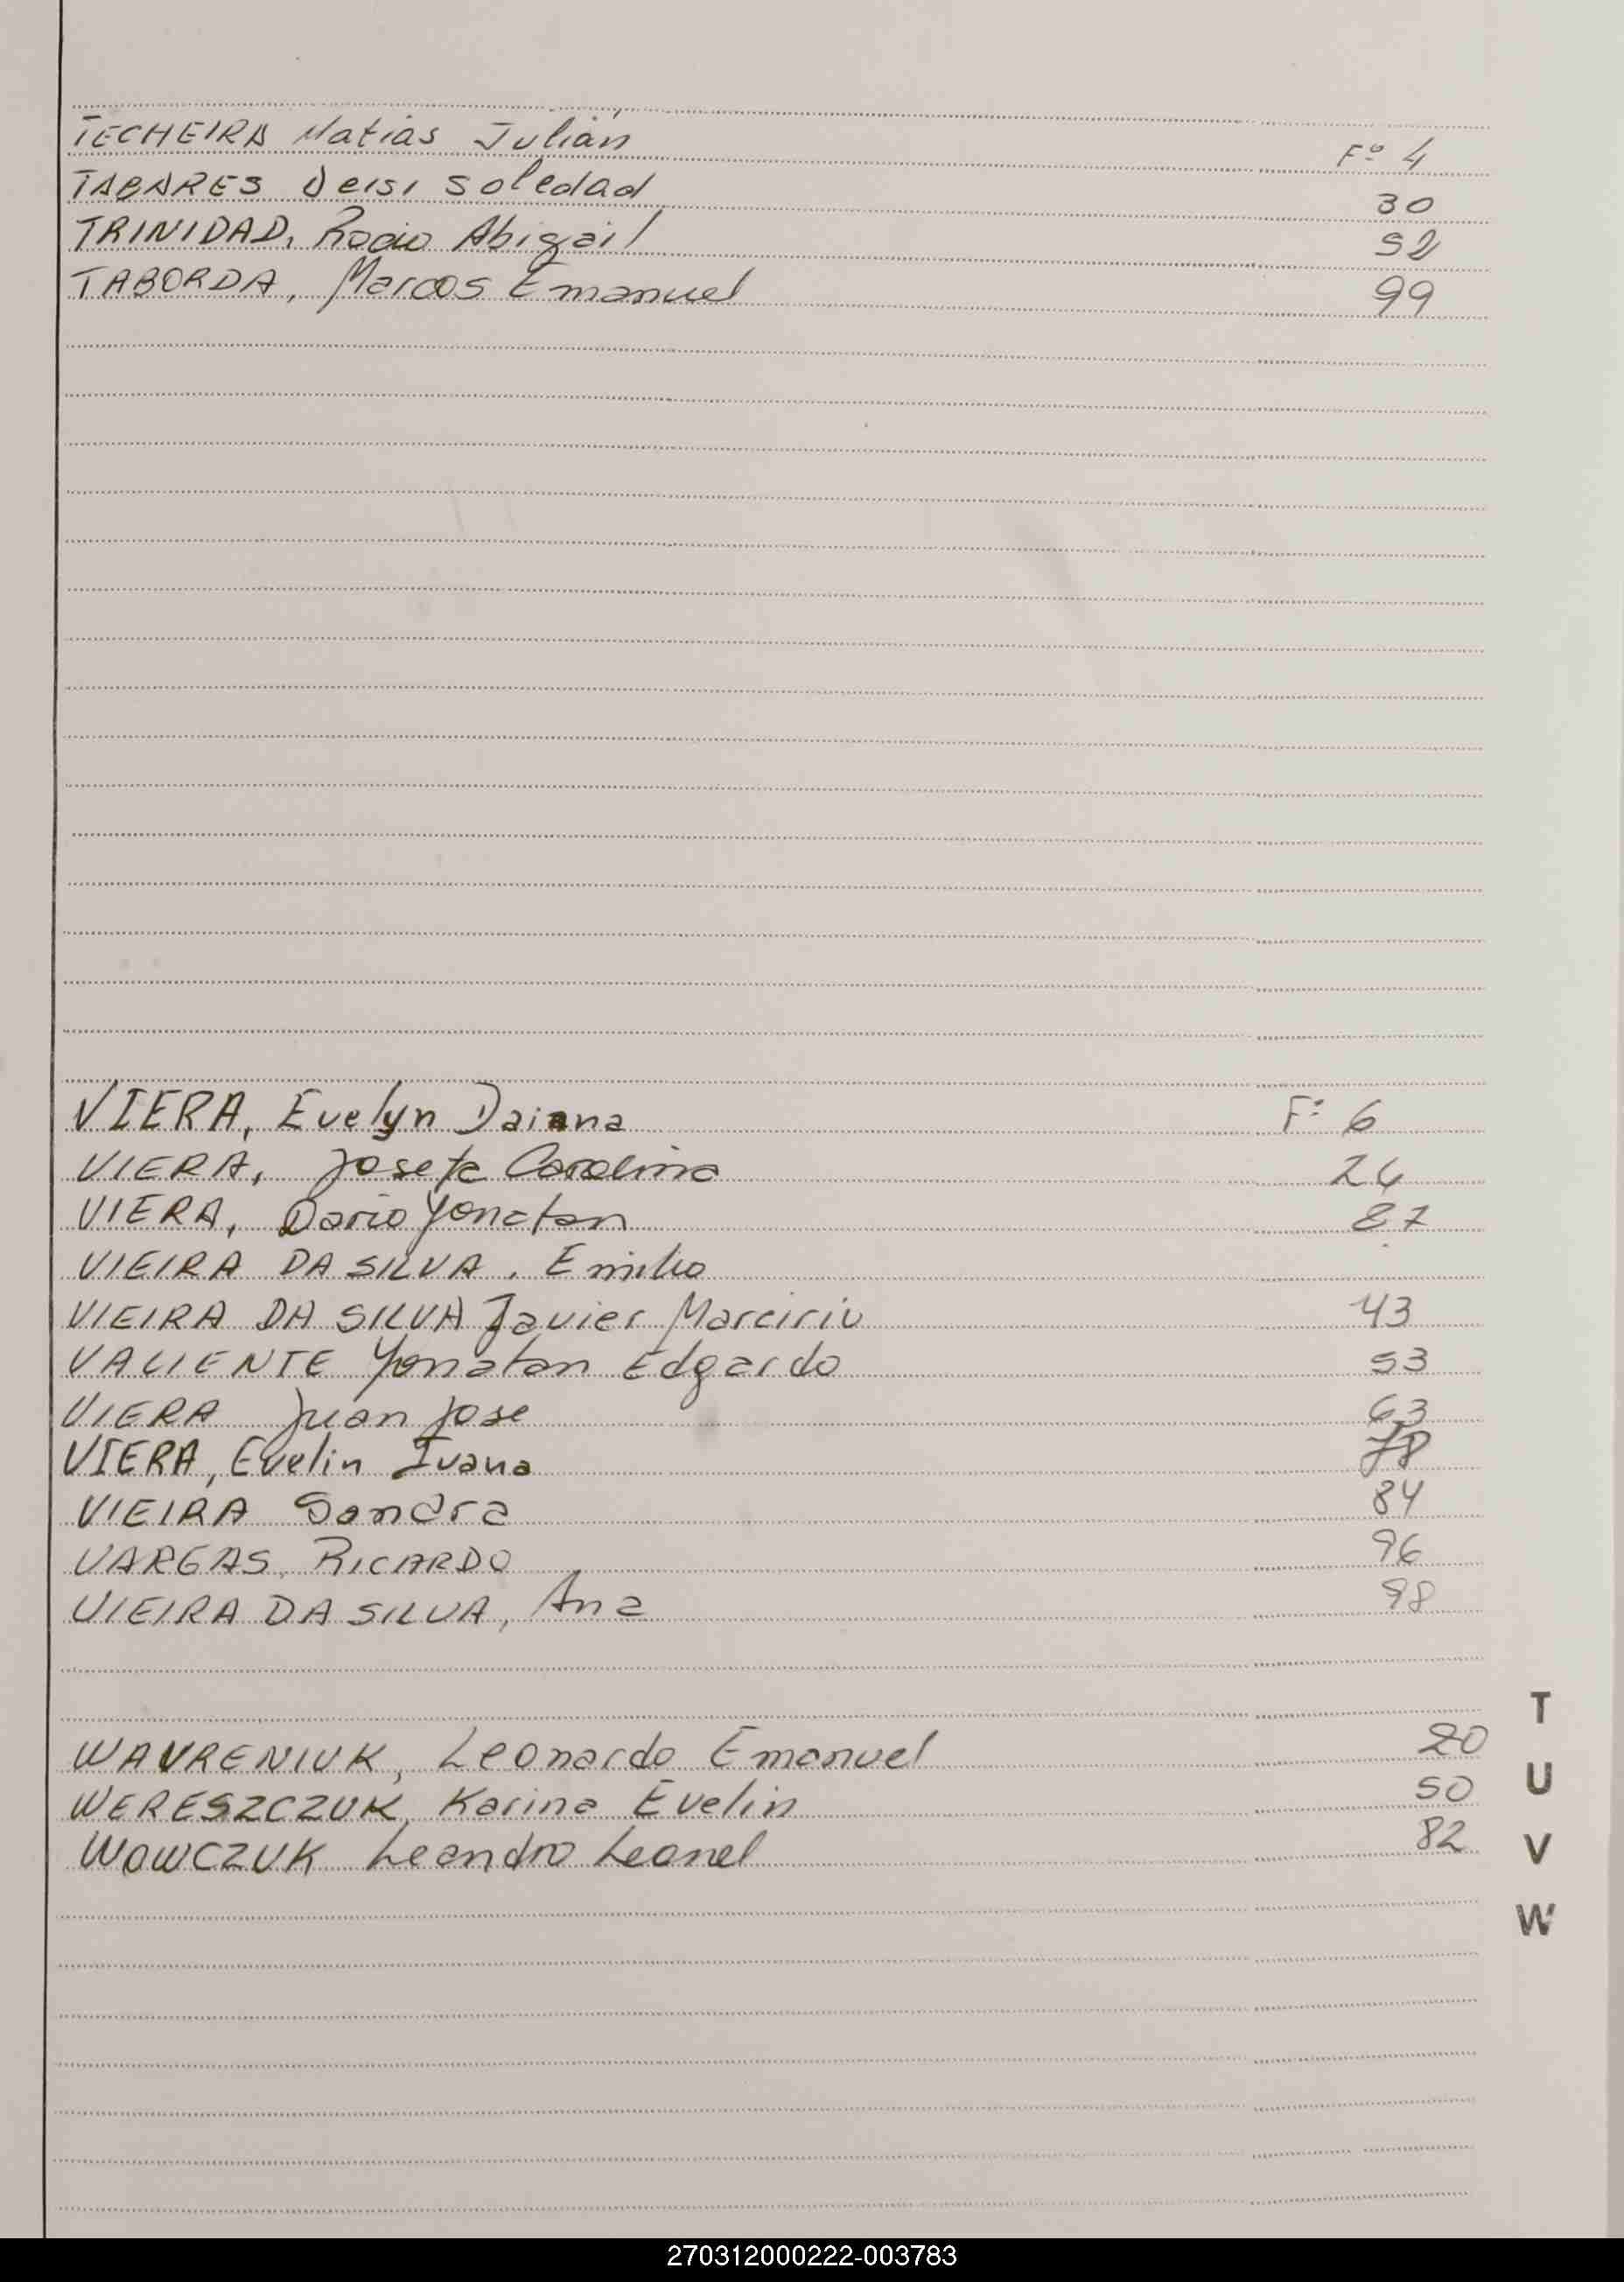 TECHEIRA Matias Julián Fº 4
TABARES Deisi Soledad 30
TRINIDAD, Rocio Abigail 52
TABORDA, Marcos Emanuel 99
VIERA, Evelyn Daiana Fº 6
VIERA, Josefa Carolina 24
VIERA, Dario Yonatan 87
VIEIRA DA SILVA, Emilio
VIEIRA DA SILVA Javier Marcirio 43
VALIENTE Yonatan Edgardo 53
VIERA Juan Jose 63
VIERA, Evelin Ivana 78
VIEIRA Sandra 84
VARGAS, RICARDO 96
VIEIRA DA SILVA, Ana 98
WAVRENIUK, Leonardo Emanuel 20
WERESZCZUK, Karina Evelin 50
WOWCZUK Leandro Leonel 82
T
U
V
W
270312000222-003783